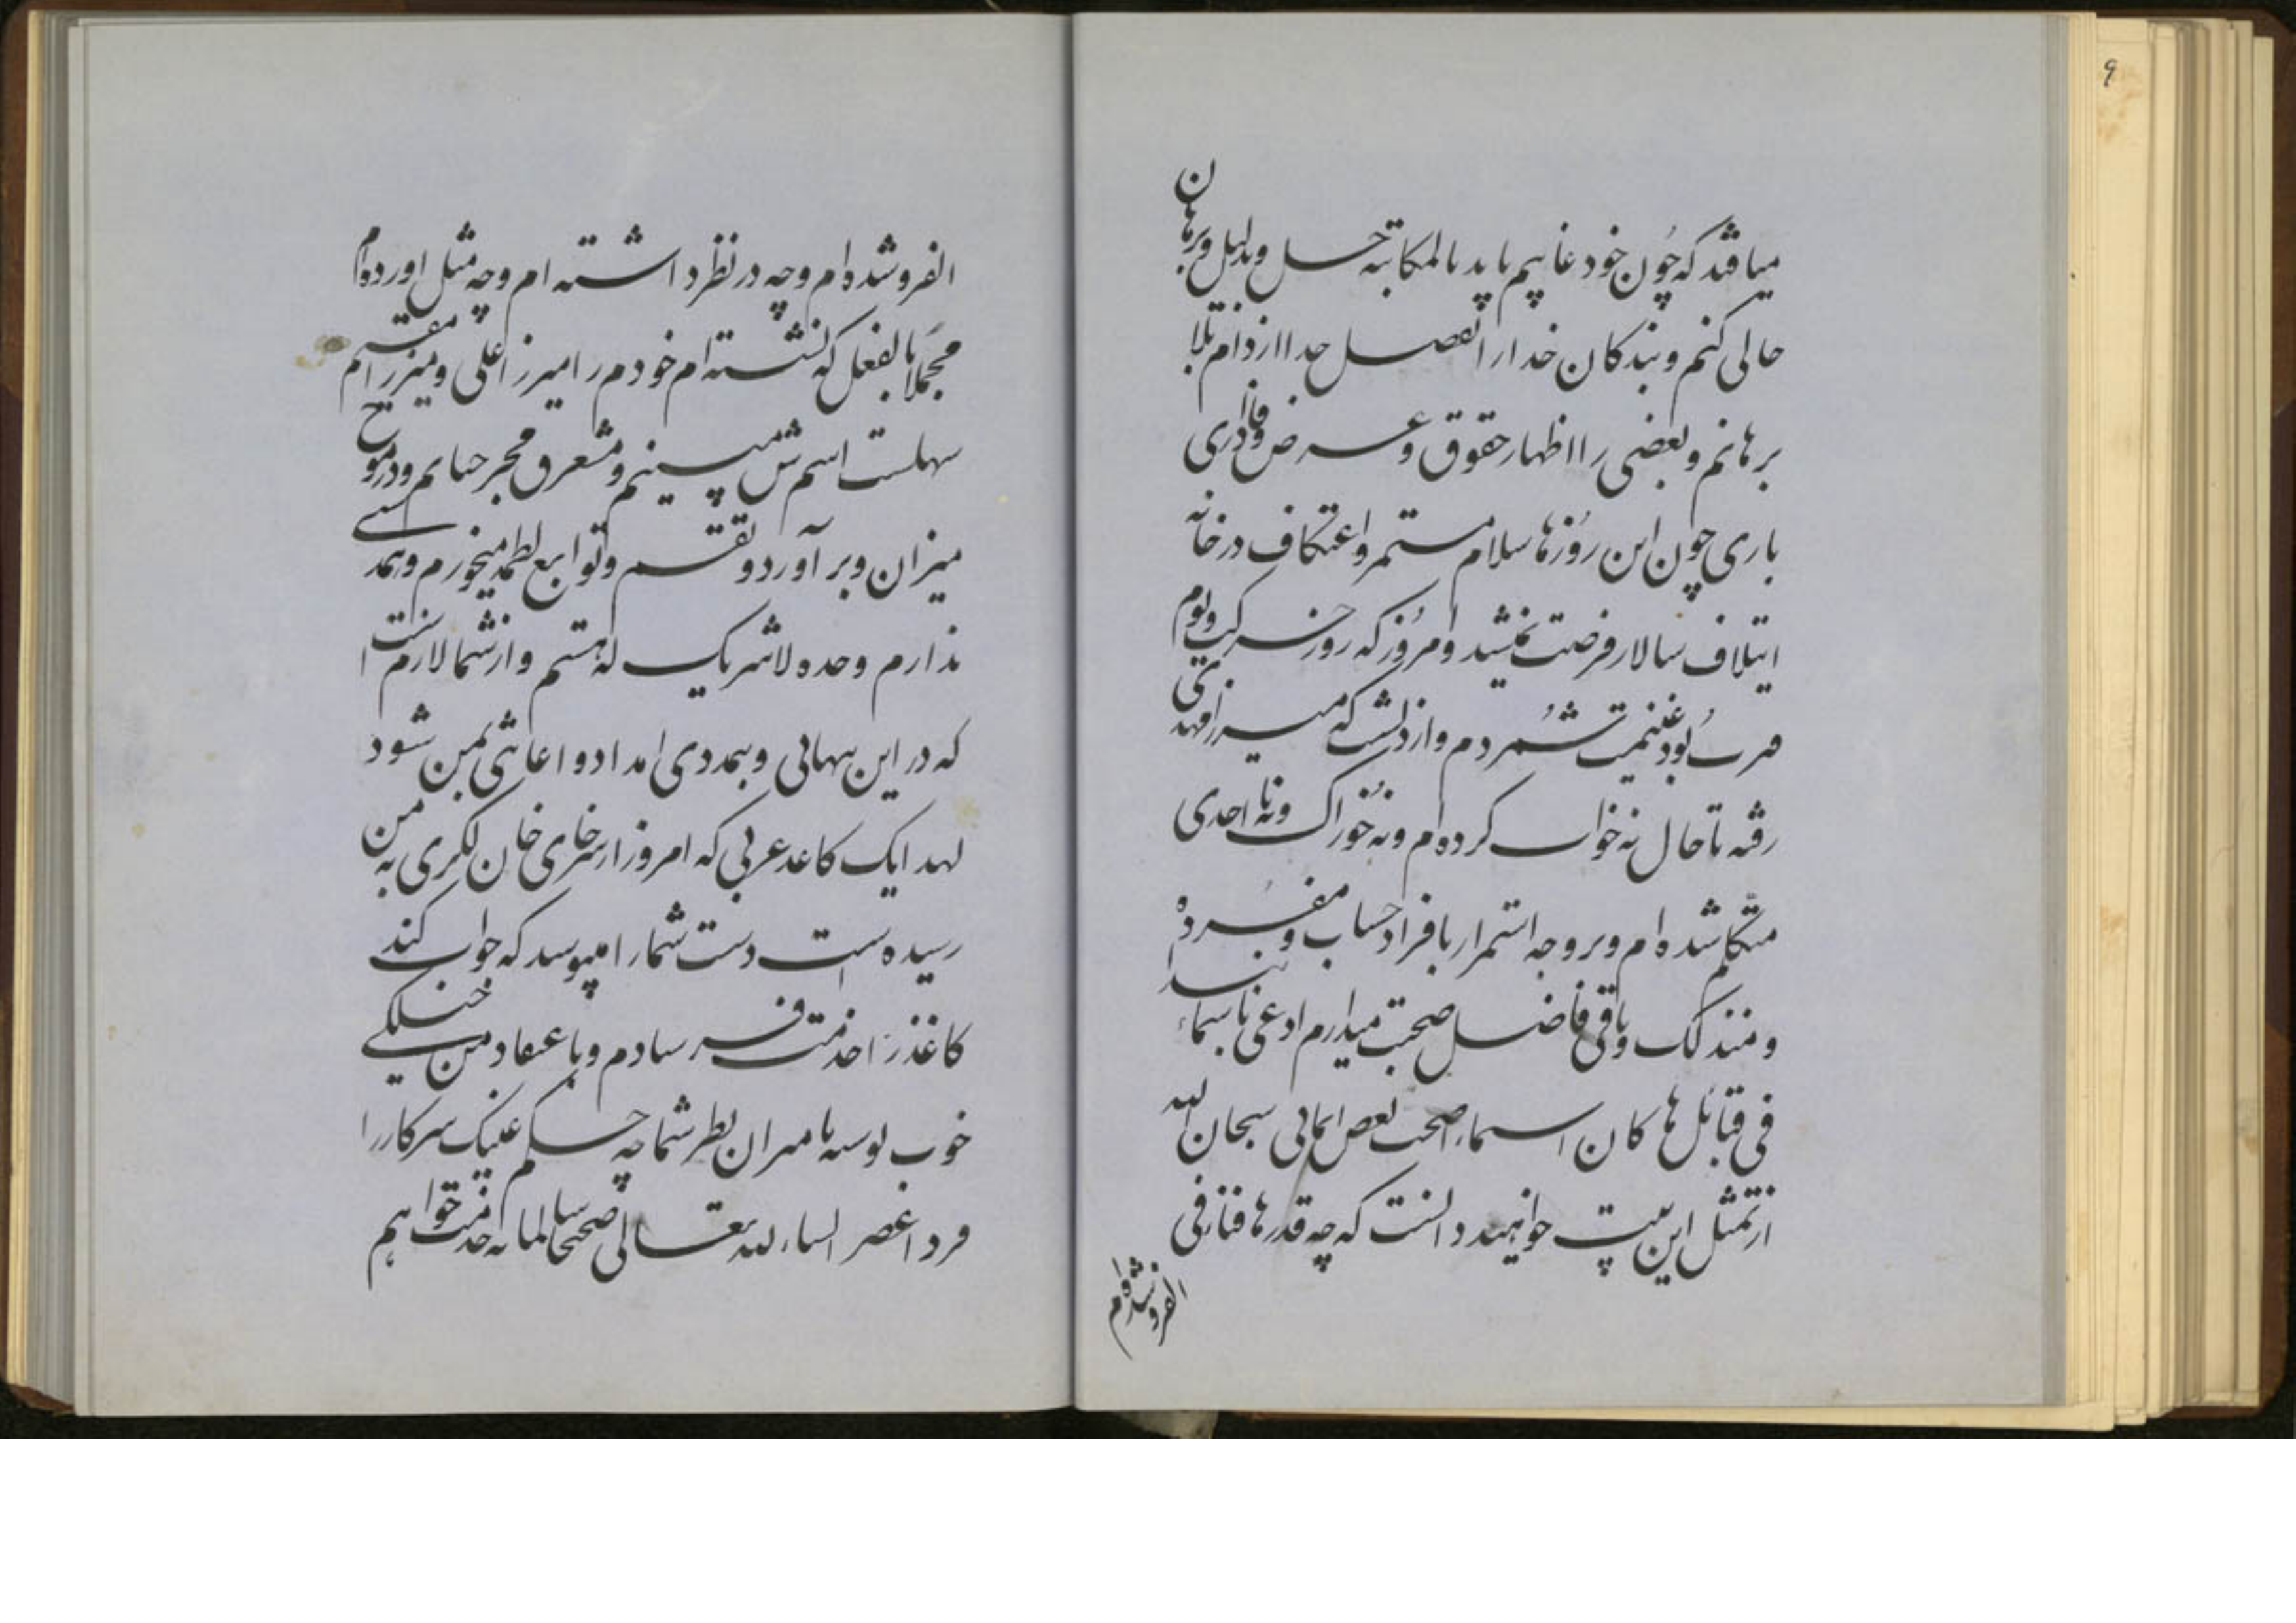 ۹
میافتد که چون خود غایبم باید بالمکاتبه حسل و بدلیل و برهان
حالی کنم و بندکان خدا را تفصل خدا از دام بلا
برهانم و بعضی را اظهار حقوق و عرض وفاداری
باری چون این روزها سلام مستمر و اعتکاف در خانه
ایتلاف سالار فرصت نمیشد و امروز که روز خسرکب و یوم
صرب بود غنیمت شمردم و از دلشکی میرزا مهدی
رفته تا حال نه خواب کرده‌ام و نه خوراک و نه با احدی
متکلم شده‌ام و بر وجه استمرار با فراد حساب و مفرده
و منذلک و باقی و فاضل صحبت میدارم ادعی باسماء نبذا
فی قبائل ها کان اسماء اصحت بعض اسمائی سبحان الله
از تمثل این بیت خواهید دانست که چه قدرها فنا فی
الفرو شده‌ام
الفرو شده‌ام و چه در نظر داشته‌ام و چه مثل آورده‌ام
مجملا بالفعل که نشسته‌ام خودم را میرزا علی و میرزا مقیم
سهلست اسمش میبینم و مشعرق مجبر حسابم و در موج
میزان و برآورد و تقسم و توابع لطمه میخورم و همدسی
ندارم وحده لا شریک له هستم و از شما لازم است
که در این تنهائی و بیمددی امداد و اعانتی بمن شود
لهد اینک کاغذ عربی که امروز از سرخای خان لکزی به من
رسیده است دست شما را میبوسد که جواب کند
کاغذ را خدمت فرستادم و باعتقاد من خیلکی
خوب نوسه تا میران نظر شما چه حکم علیک سرکار را
فردا عصر انشاء الله تعالی صحیحا سالما به خدمت خواهم